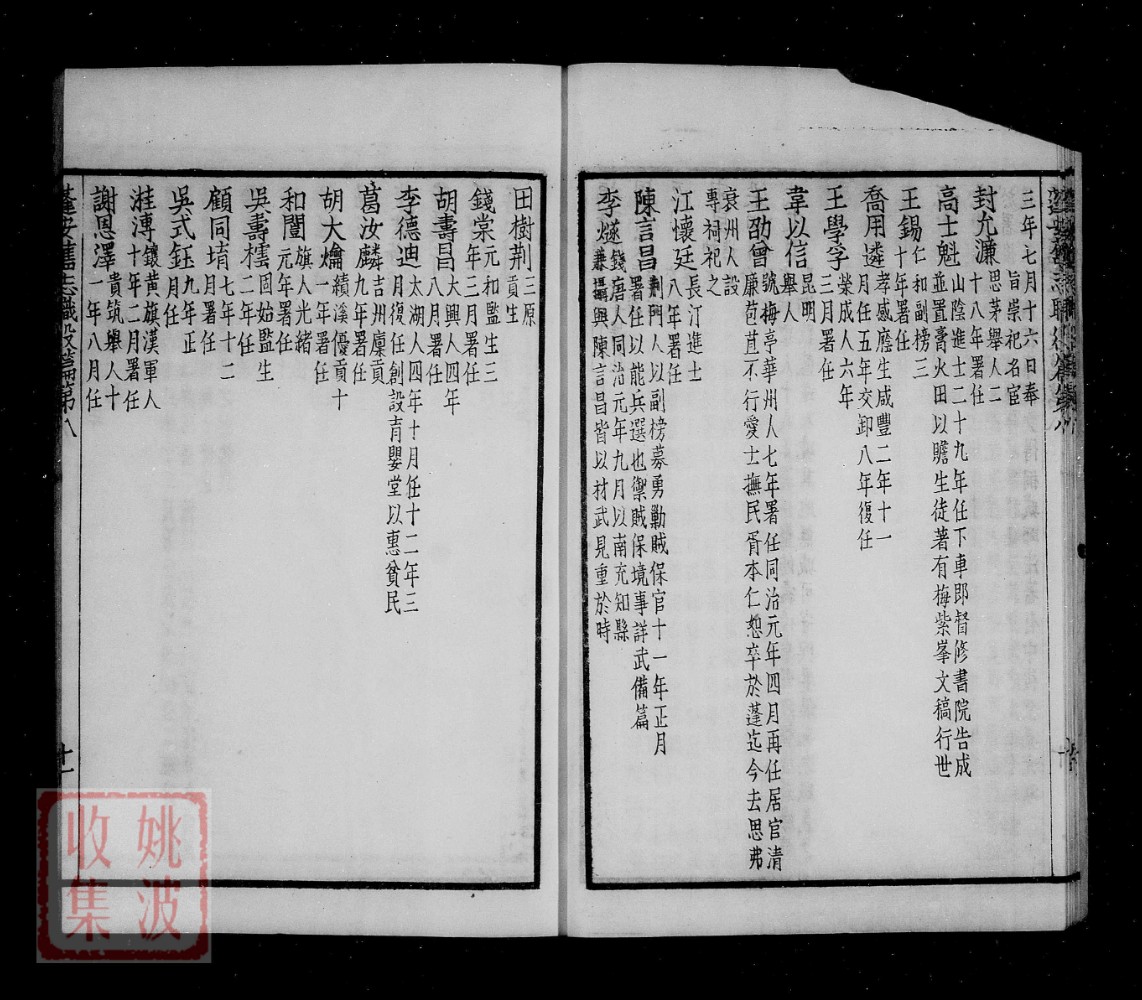 三年七月十六日奉
旨崇祀名宦
封允濂思茅舉人二
十八年署任
高士魁山陰進士二十九年任下車即督修書院告成
並置膏火田以贍生徒著有梅紫峯文稿行世
王錫仁仁和副榜三
十年署任
喬用遴孝感廕生咸豐二年十一
月任五年交卸八年復任
王學孚榮成人六年
三月署任
韋以信昆明
舉人
王劭曾號梅亭華州人七年署任同治元年四月再任居官清
廉苞苴不行愛士撫民胥本仁恕卒於蓬迄今去思弗
衰州人設
專祠祀之
江懷廷長汀進士
八年署任
陳言昌荆門人以副榜募勇勦賊保官十一年正月
署任以能兵選也禦賊保境事詳武備篇
李燧錢唐人同治元年九月以南充知縣
兼攝與陳言昌皆以材武見重於時
田樹荆三原
貢生
錢棠元和監生三
年三月署任
胡壽昌大興人四年
八月署任
李德迪太湖人四年十月任十二年三
月復任創設育嬰堂以惠貧民
葛汝麟吉州廩貢
九年署任
胡大爚績溪優貢十
一年署任
和誾旗人光緒
元年署任
吳壽櫺固始監生
二年任
顧同堉七年十二
月署任
吳式鈺九年正
月任
溎漙鑲黃旗漢軍人
十年二月署任
謝恩澤貴筑舉人十
一年八月任
篇第八
十一
姚波
收集